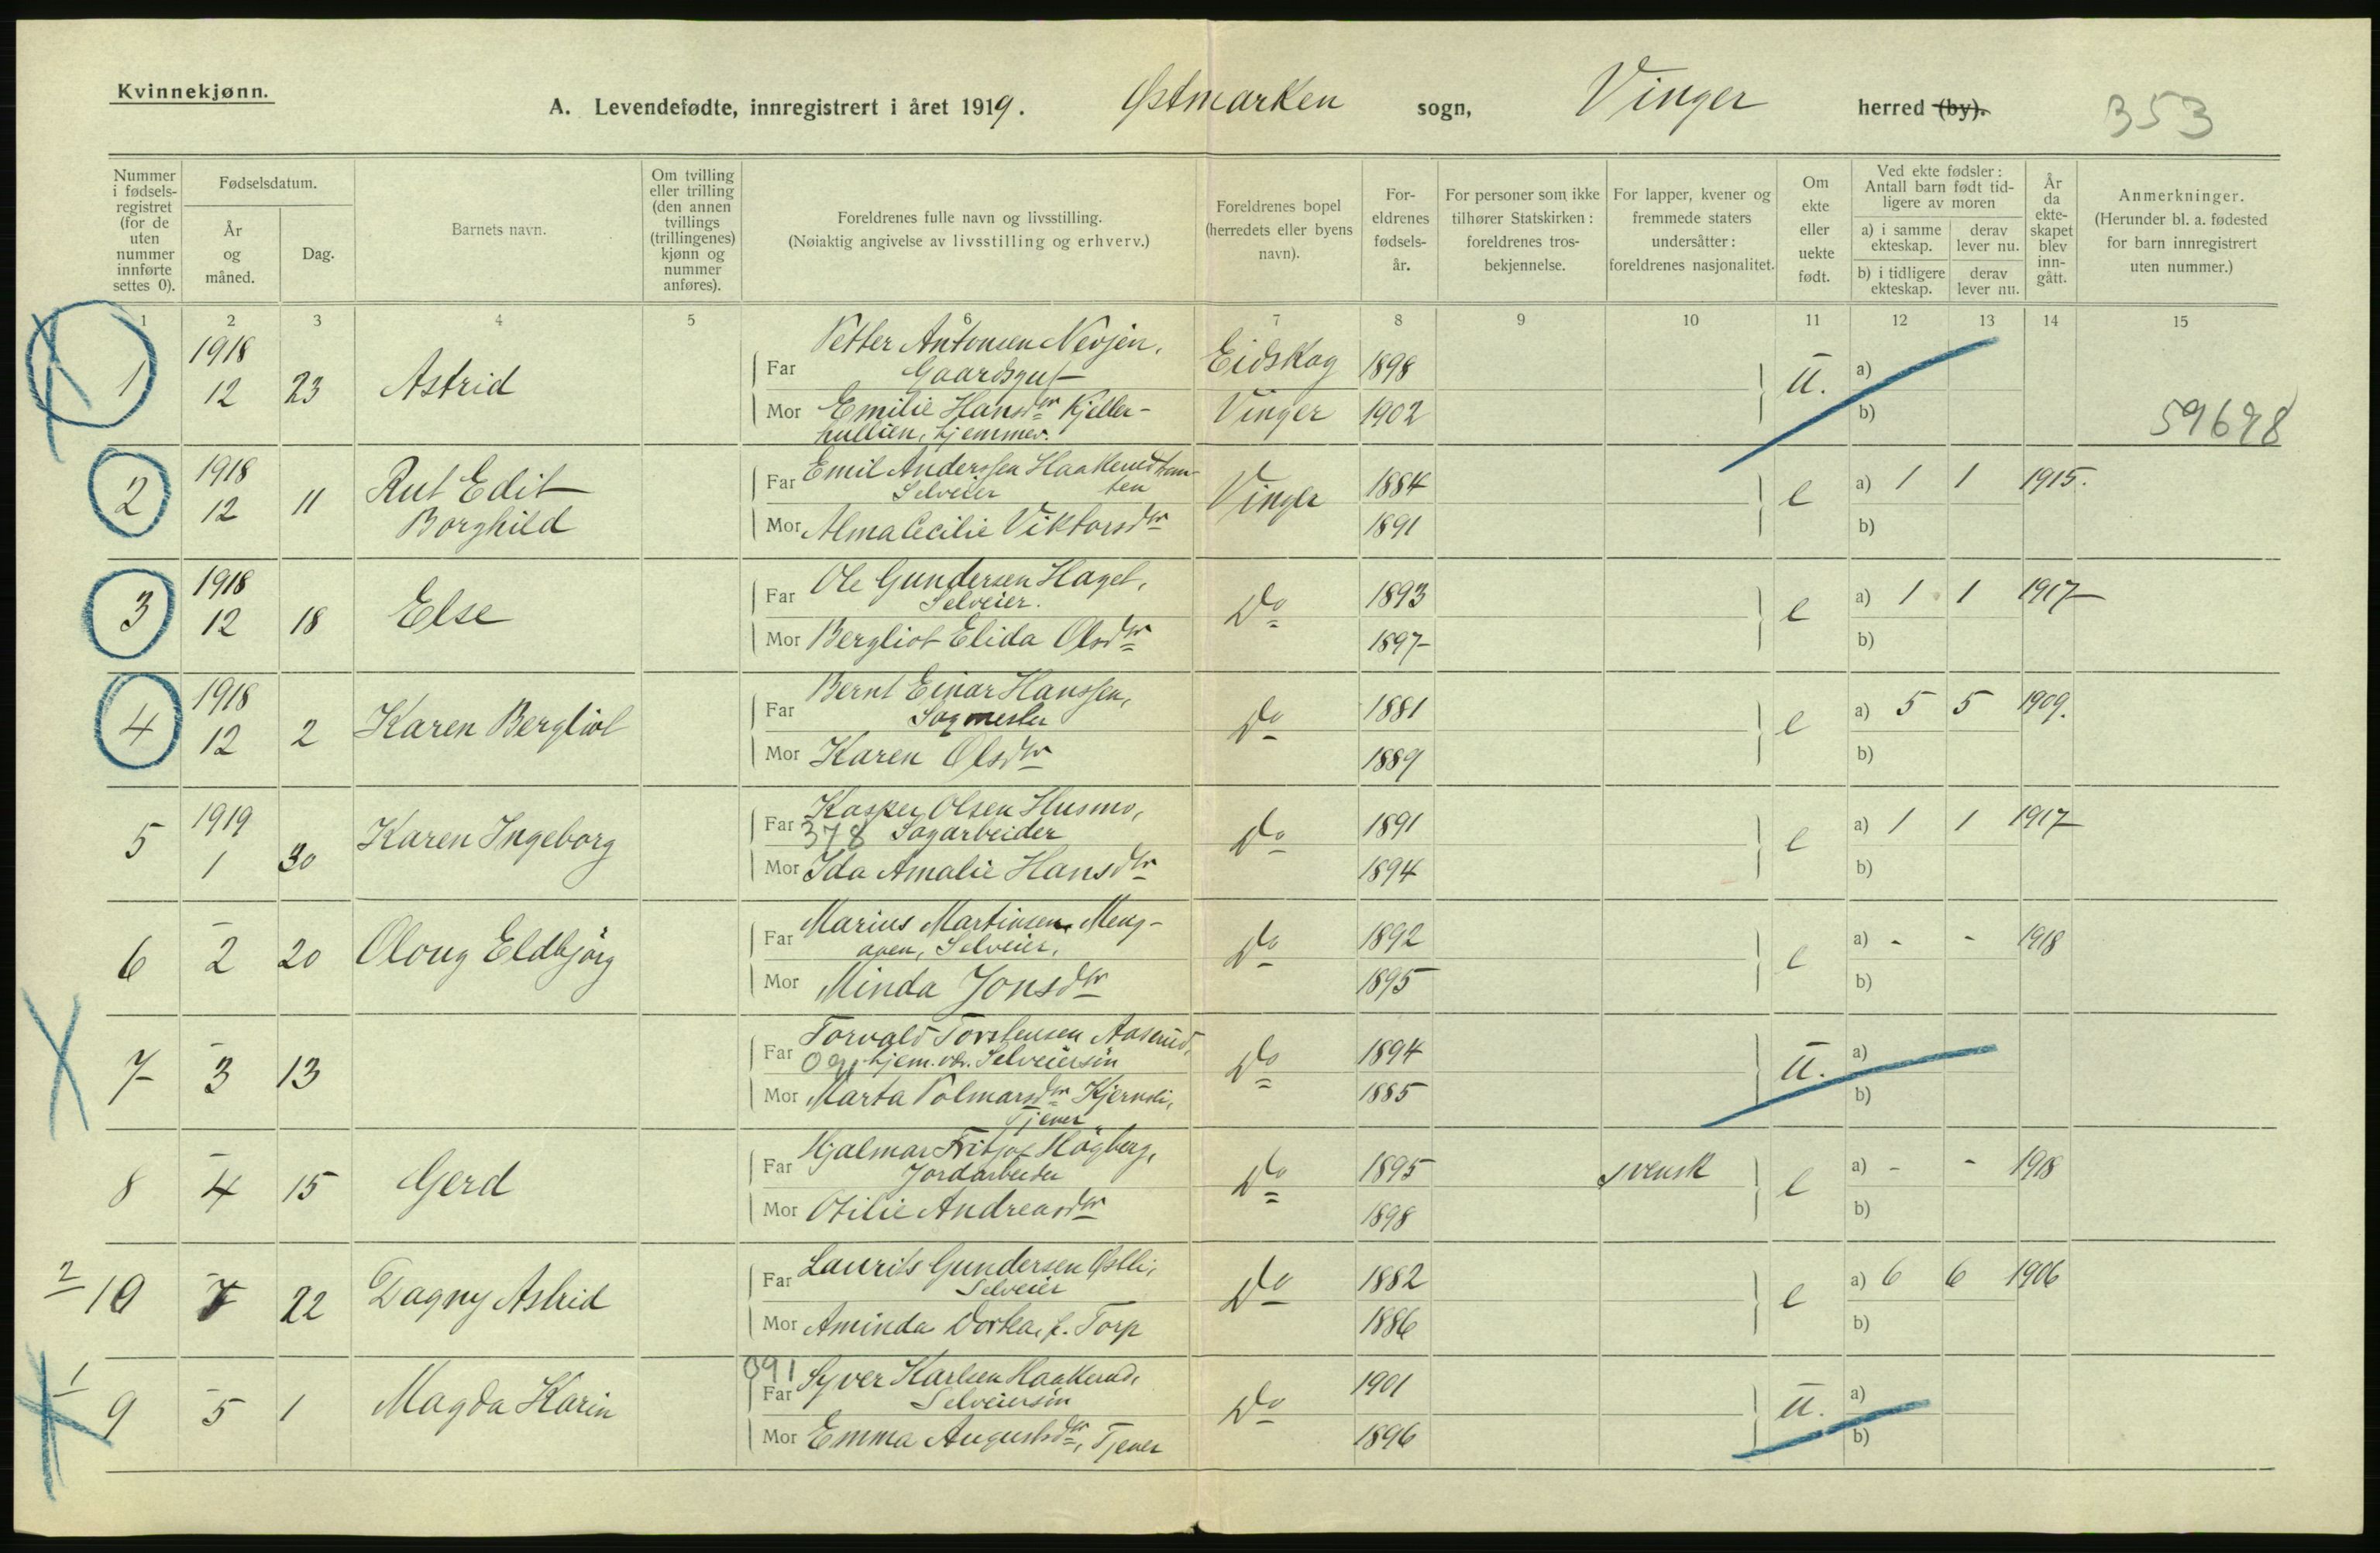 Kvinnekjønn.
A. Levendefødte, innregistrert i året 1919. Østmarken sogn, Vinger herred (by). 353
Nummer i fødsels-registret (for de uten nummer innførte settes 0).
Fødselsdatum.
År og måned.
Dag.
Barnets navn.
Om tvilling eller trilling (den annen tvillings (trillingenes) kjønn og nummer anføres).
Foreldrenes fulle navn og livsstilling.
(Nøiaktig angivelse av livsstilling og erhverv.)
Foreldrenes bopel (herredets eller byens navn).
For-eldrenes fødsels-år.
For personer som ikke tilhører Statskirken: foreldrenes tros-bekjennelse.
For lapper, kvener og fremmede staters undersåtter: foreldrenes nasjonalitet.
Om ekte eller uekte født.
Ved ekte fødsler: Antall barn født tid-ligere av moren
a) i samme ekteskap.
derav lever nu.
b) i tidligere ekteskap.
derav lever nu.
År da ekte-skapet blev inn-gått.
Anmerkninger.
(Herunder bl. a. fødested for barn innregistrert uten nummer.)
1 2 3 4 5 6 7 8 9 10 11 12 13 14 15
1 1918 12 23 Astrid
Far Petter Antonsen Nevjen, Gaardsgut Eidskog 1898 U. a)
Mor Emilie Hansdtr Kjeller-hullien, hjemmev. Vinger 1902 b) 59678
2 1918 12 11 Rut Edit Borghild
Far Emil Anderssen Haakenrud Selveier Vinger 1884 e a) 1 1 1915.
Mor Alma Cecilie Viktorsdtr 1891 b)
3 1918 12 18 Else
Far Ole Gundersen Haget, Selveier. Do 1893 e a) 1 1 1917
Mor Bergliot Elida Olsdtr 1897 b)
4 1918 12 2 Karen Bergliot
Far Bernt Einar Hanssen, Sagmester Do 1881 e a) 5 5 1909.
Mor Karen Olsdtr 1889 b)
5 1919 1 30 Karen Ingeborg
Far Kasper Olsen Husmo, 378 Sagarbeider Do 1891 e a) 1 1 1917
Mor Ida Amalie Hansdtr 1894 b)
6 - 2 20 Oloug Eldbjörg
Far Marius Martinsen Meng-aaen, Selveier, Do 1892 e a) - - 1918
Mor Minda Jonsdtr 1895 b)
7 - 3 13
Far Torvald Torstensen Aaserud, hjem.vær. Selveiersön Do 1894 U. a)
Mor Marta Volmarsdtr Kjernli, Tjener 1885 b)
8 - 4 15 Gerd
Far Hjalmar Fritjof Högberg, Jordarbeider Do 1895 svensk e a) - - 1918
Mor Otilie Andreasdtr 1898 b)
2 10 - 22 Dagny Astrid
Far Laurits Gundersen Østli, Selveier Do 1882 e a) 6 6 1906
Mor Aminda Dortea f. Torp 1886 b)
1 9 - 5 1 Magda Karin
091 Far Syver Karlsen Haakerud, Selveiersön Do 1901 U. a)
Mor Emma Augustsdtr, Tjener 1896 b)